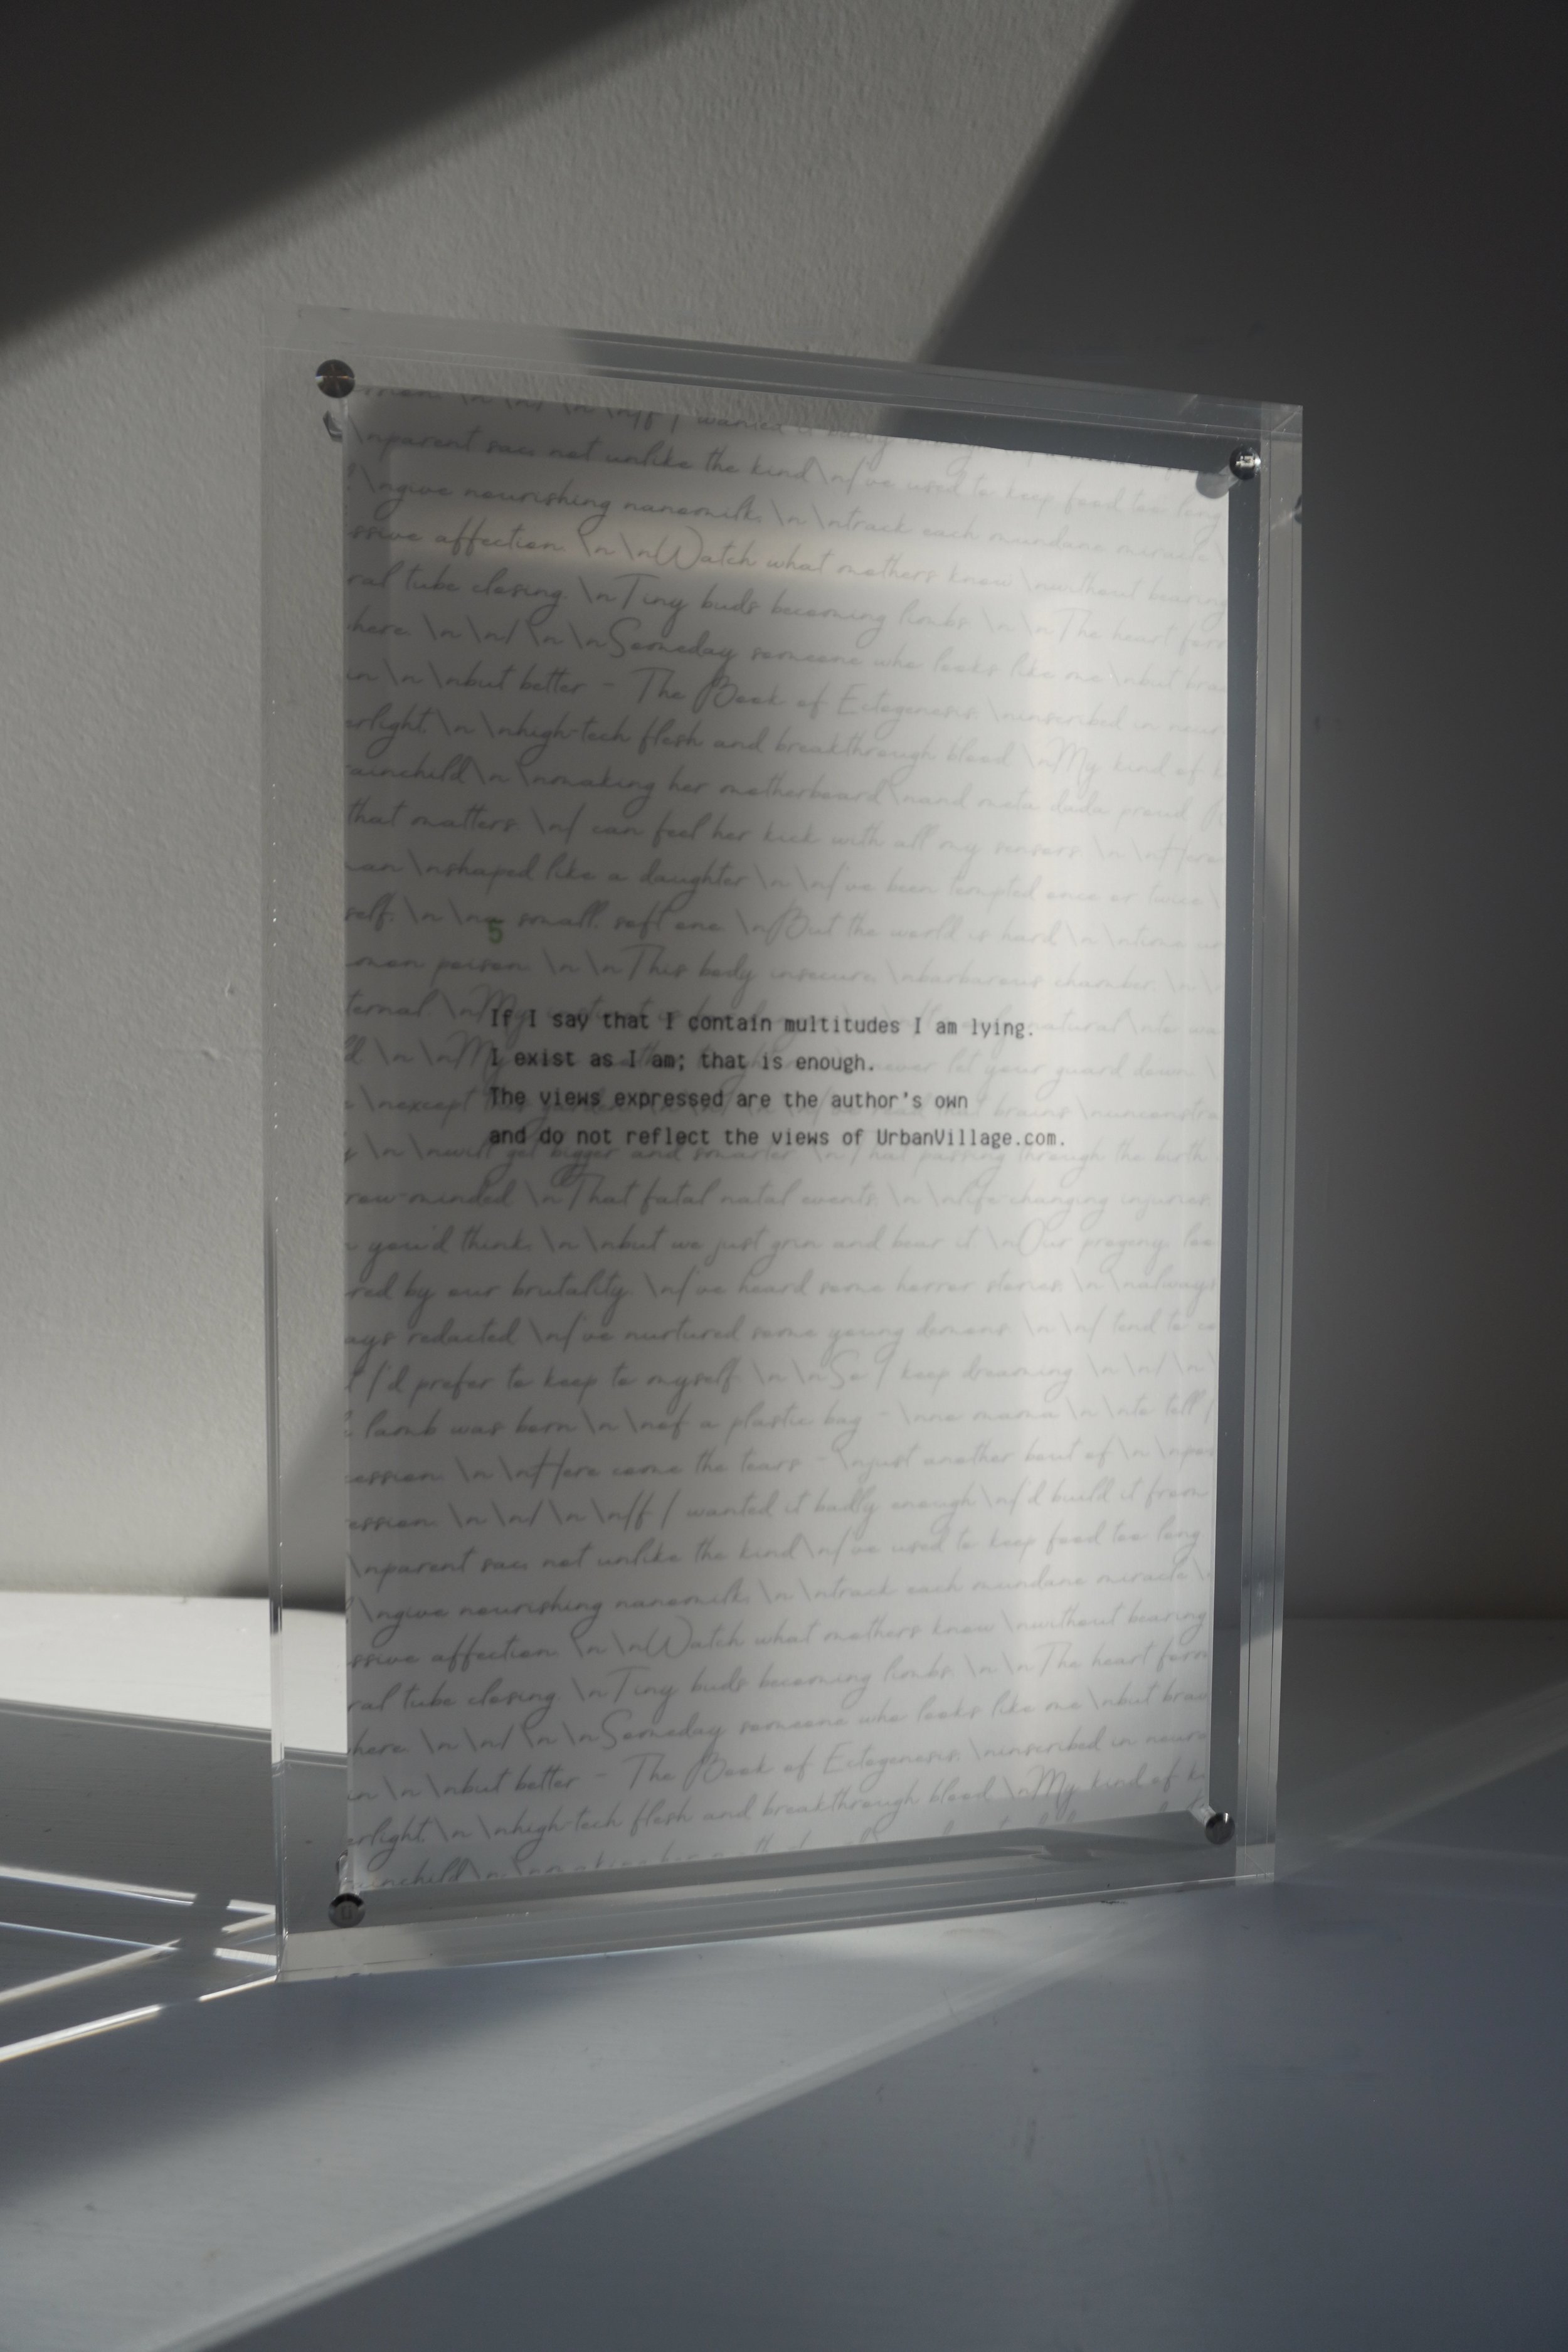 \n \n/ \n \nIf I wanted it badly
\nparent sac, not unlike the kind\nI've used to keep food too long
\ngive nourishing nanomilk, \n \ntrack each mundane miracle \
ssive affection. \n \nWatch what mothers know \nwithout bearing
ral tube closing. \nTiny buds becoming limbs. \n \nThe heart form
here. \n \n/ \n \nSomeday someone who looks like me \nbut brav
in \n \nbut better - The Book of Ectogenesis, \ninscribed in neur
erlight \n \nhigh-tech flesh and breakthrough blood. \nMy kind of k
ainchild\n \nmaking her motherboard\nand meta dada proud.
that matters. \nI can feel her kick with all my sensors. \n \nHere
an \nshaped like a daughter \n \nI've been tempted once or twice \
5
self. \n \na small, soft one. \nBut the world is hard\n \ntime
mon poison. \n \nThis body insecure, \nbarbarous chamber. \n \
ternal. \nMy
If I say that I contain multitudes I am lying.
d \n \nMy never let your guard down. \
I exist as I am; that is enough.
\nexcept brains \nunconstra
The views expressed are the author's own
and do not reflect the views of UrbanVillage.com.
y \n \nwill get bigger and smarter. \nThat passing through the birth
row-minded. \nThat fatal natal events, \n \nlife-changing injuries,
you'd think, \n \nbut we just grin and bear it. \nOur progeny, too
red by our brutality. \nI've heard some horror stories. \n \nalways
ays redacted. \nI've nurtured some young demons. \n \nI tend to
I'd prefer to keep to myself. \n \nSo I keep dreaming. \n \n/ \n \
lamb was born \n \nof a plastic bag - \nno mama \n \nto tell
ession. \n \nHere come the tears - \njust another bout of \n \npos
ession. \n \n/ \n \nIf I wanted it badly enough\nI'd build it from
\nparent sac, not unlike the kind\nI've used to keep food too long
\ngive nourishing nanomilk, \n \ntrack each mundane miracle \
ssive affection. \n \nWatch what mothers know \nwithout bearing
ral tube closing. \nTiny buds becoming limbs. \n \nThe heart form
here. \n \n/ \n \nSomeday someone who looks like me \nbut brav
in \n \nbut better - The Book of Ectogenesis, \ninscribed in neur
erlight \n \nhigh-tech flesh and breakthrough blood. \nMy kind of k
ainchild\n \nmaking her